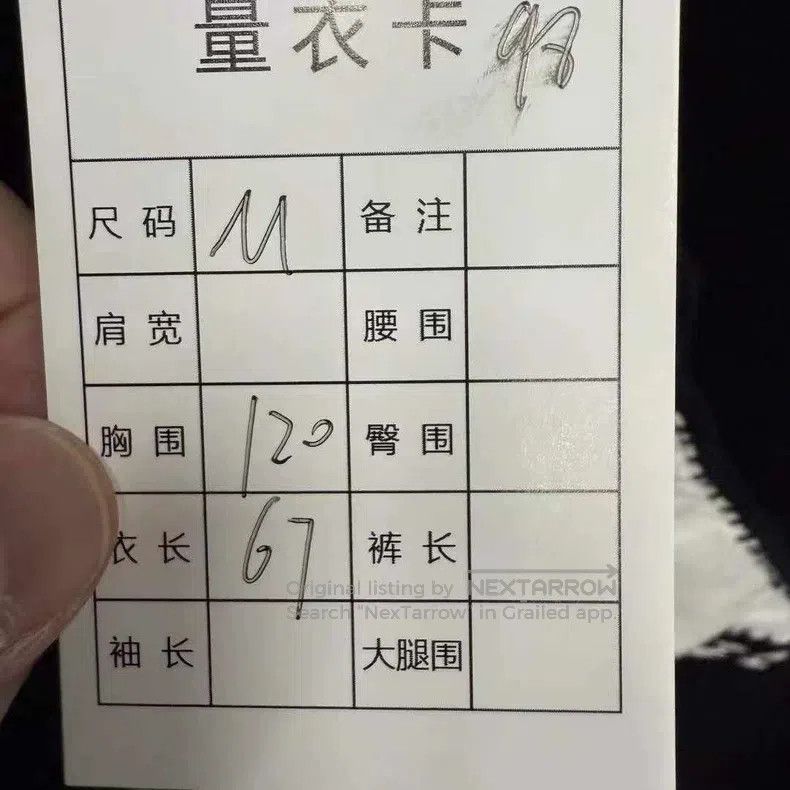 量衣卡
尺码 M 备注
肩宽 腰围
胸围 120 臀围
衣长 67 裤长
Original listing by NEXTARROW
Search "NexTarrow" in Grailed app.
袖长 大腿围